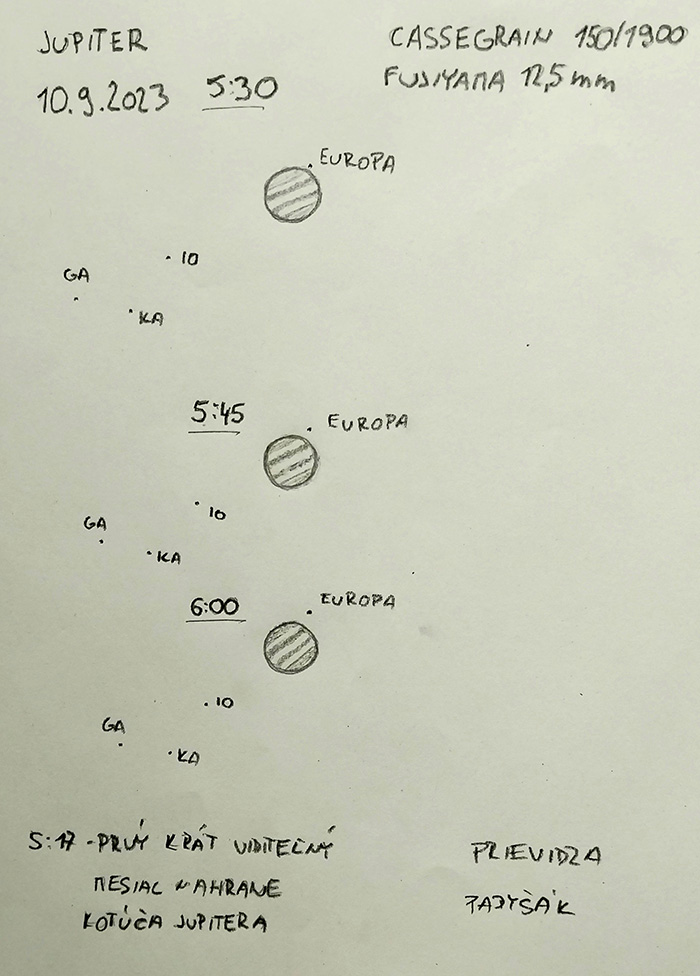 JUPITER
CASSEGRAIN 150/1900
10.9.2023 5:30
FUJIYAMA 12,5mm
EUROPA
IO
GA
KA
5:45
EUROPA
IO
GA
KA
6:00
EUROPA
IO
GA
KA
5:17 - PRVÝ KRÁT VIDITEĽNÝ
MESIAC NAHRANE
KOTÚČA JUPITERA
PRIEVIDZA